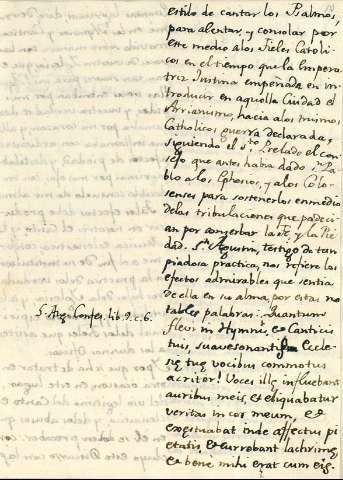 estilo de cantar los Psalmos,
para alentar, y consolar por
este medio alos Fieles Catoli-
cos en el tiempo que la Impera-
triz Justina empeñada en in-
troducir en aquella Ciudad el
Arrianismo, hacia alos mismos
Catholicos guerra declarada,
siguiendo el Sto Prelado el con-
sejo que antes habia dado Sn Pa-
blo alos Ephesios, y alos Colo-
senses para sostenerlos enmedio
delas tribulaciones que padeci-
an por conserbar la Fe, y la Pie-
dad. Sn Agustin, testigo de tan
piadosa practica, nos refiere los
efectos admirables que sentia
de ella en su alma, por estas no-
tables palabras: Quantum
S. Aug. Confes. lib. 9. c. 6.
fleui in Hymnis, et Canticis
tuis, suavesonantis Eccle-
się tuę vocibus commotus
acriter! Voces illę influebant
auribus meis, et eliquabatur
veritas in cor meum, et
exęstuabat inde affectus pi-
etatis, et currebant lachrimę,
et bene mihi erat cum eis.